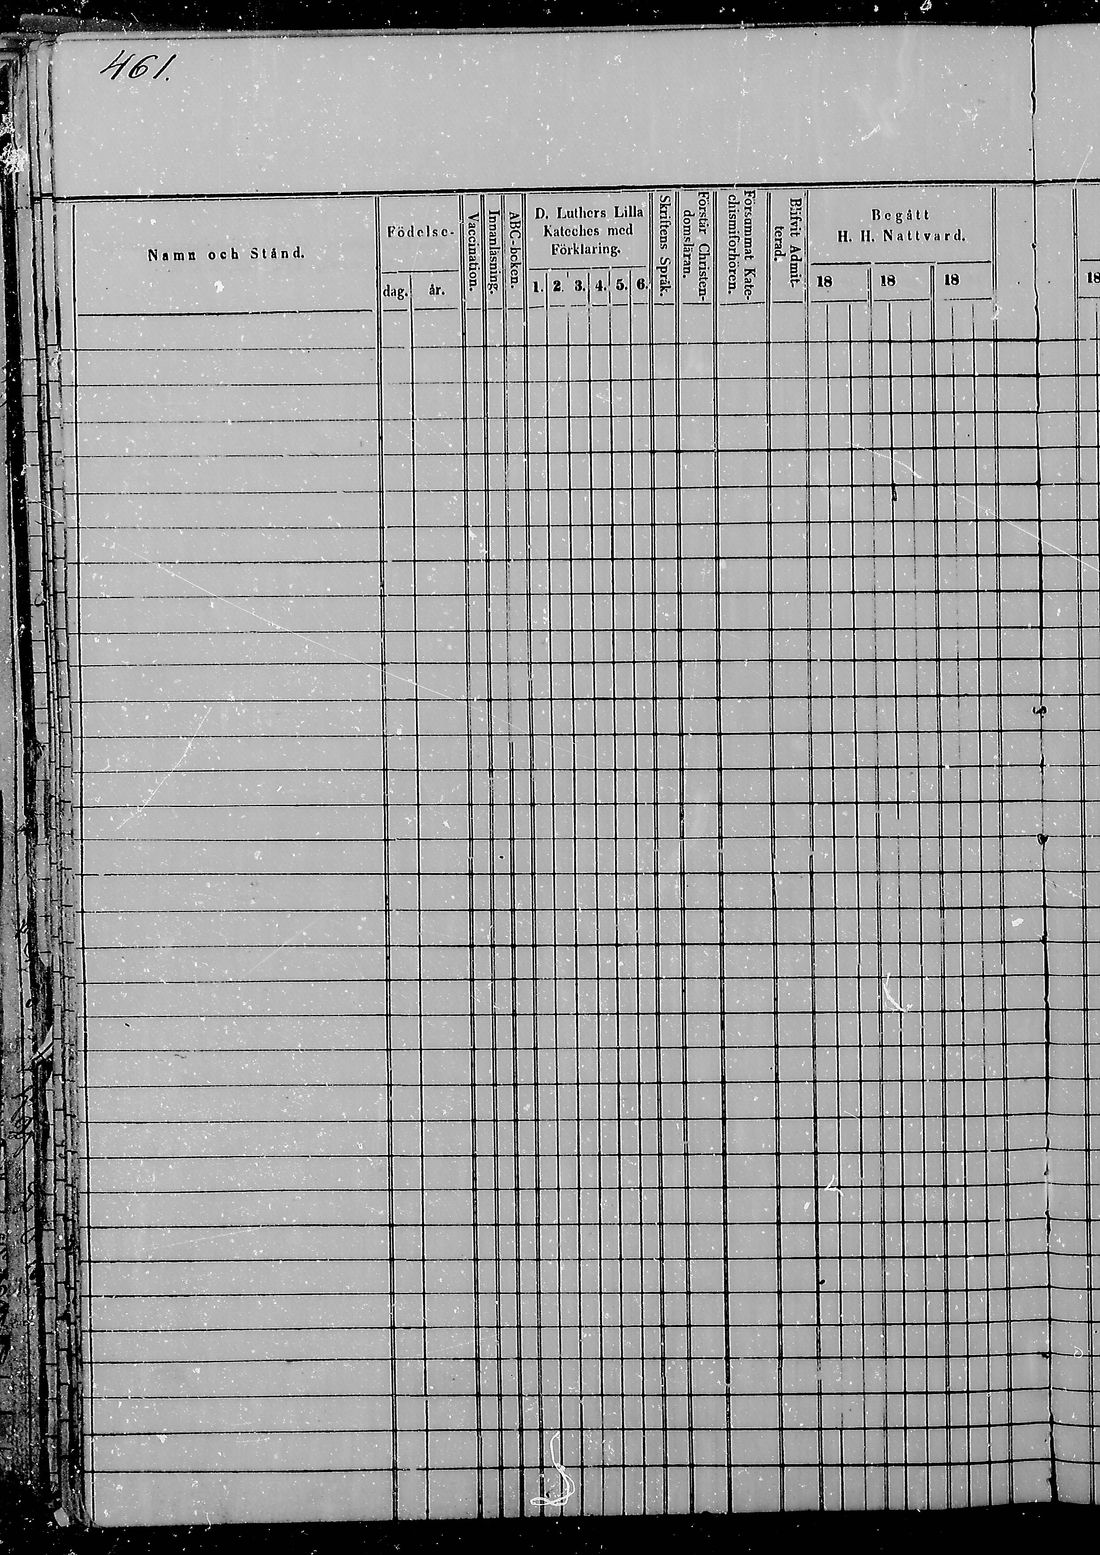 461.
Namn och Stånd.
Födelse-
dag.
år.
Vaccination.
Innanläsning.
ABC-boken.
D. Luthers Lilla
Kateches med
Förklaring.
1. 2. 3. 4. 5. 6.
Skriftens Språk.
Förstår Christen-
domsläran.
Försummat Kate-
chismiförhören.
Blifvit Admit-
terad.
Begått
H. H. Nattvard.
18 18 18
18